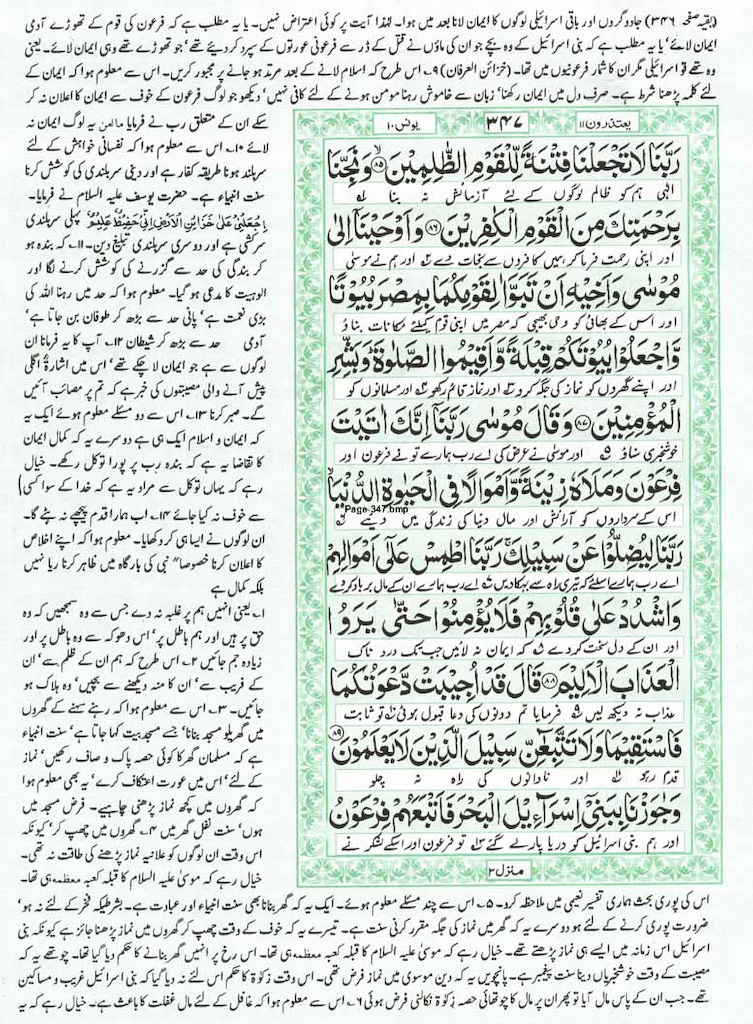 (بقیہ صفحہ ۳۴۶) جادوگروں اور باقی اسرائیلی لوگوں کا ایمان لانا بعد میں ہوا۔ لہٰذا آیت پر کوئی اعتراض نہیں۔ یا یہ مطلب ہے کہ فرعون کی قوم کے تھوڑے آدمی
ایمان لائے' یا یہ مطلب ہے کہ بنی اسرائیل کے وہ بچے جو ان کی ماؤں نے قتل کے ڈر سے فرعونی عورتوں کے سپرد کر دیئے تھے' جو تھوڑے تھے وہی ایمان لائے۔ یعنی
وہ تھے تو اسرائیلی مگر ان کا شمار فرعونیوں میں تھا۔ (خزائن العرفان) ۹۔ اس طرح کہ اسلام لانے کے بعد مرتد ہو جانے پر مجبور کریں۔ اس سے معلوم ہوا کہ ایمان کے
لئے کلمہ پڑھنا شرط ہے۔ صرف دل میں ایمان رکھنا' زبان سے خاموش رہنا مومن ہونے کے لئے کافی نہیں' دیکھو جو لوگ فرعون کے خوف سے ایمان کا اعلان نہ کر
سکے ان کے متعلق رب نے فرمایا ما امن یہ لوگ ایمان نہ
لائے ۱۰۔ اس سے معلوم ہوا کہ نفسانی خواہش کے لئے
سربلند ہونا طریقہ کفار ہے اور دینی سربلندی کی کوشش کرنا
سنت انبیاء ہے۔ حضرت یوسف علیہ السلام نے فرمایا۔
اِجْعَلْنِیْ عَلٰی خَزَآئِنِ الْاَرْضِ اِنِّیْ حَفِیْظٌ عَلِیْمٌ پہلی سربلندی
سرکشی ہے اور دوسری سربلندی تبلیغ دین۔ ۱۱۔ کہ بندہ ہو
کر بندگی کی حد سے گزرنے کی کوشش کرنے لگا اور
الوہیت کا مدعی ہو گیا۔ معلوم ہوا کہ حد میں رہنا اللہ کی
بڑی نعمت ہے' پانی حد سے بڑھ کر طوفان بن جاتا ہے'
آدمی حد سے بڑھ کر شیطان ۱۲۔ آپ کا یہ فرمانا ان
لوگوں سے ہے جو ایمان لا چکے تھے' اس میں اشارۃً اگلی
پیش آنے والی مصیبتوں کی خبر ہے کہ تم پر مصائب آئیں
گے۔ صبر کرنا ۱۳۔ اس سے دو مسئلے معلوم ہوئے ایک یہ
کہ ایمان و اسلام ایک ہی ہے دوسرے یہ کہ کمال ایمان
کا تقاضا یہ ہے کہ بندہ رب پر پورا توکل رکھے۔ خیال
رہے کہ یہاں توکل سے مراد یہ ہے کہ خدا کے سوا کسی)
سے خوف نہ کیا جائے ۱۴۔ اب ہمارا قدم پیچھے نہ ہٹے گا۔
ان لوگوں نے ایسا ہی کر دکھایا۔ معلوم ہوا کہ اپنے اخلاص
کا اعلان کرنا خصوصاً" نبی کی بارگاہ میں ظاہر کرنا ریا نہیں
بلکہ کمال ہے
۱۔ یعنی انہیں ہم پر غلبہ نہ دے جس سے وہ سمجھیں کہ وہ
حق پر ہیں اور ہم باطل پر' اس دھوکہ سے وہ باطل پر اور
زیادہ جم جائیں ۲۔ اس طرح کہ ہم ان کے ظلم سے' ان
کے فریب سے' ان کا منہ دیکھنے سے بچیں' وہ ہلاک ہو
جائیں۔ ۳۔ اس سے معلوم ہوا کہ رہنے سہنے کے گھروں
میں گھریلو مسجد بنانا' جسے مسجد بیت کہا جاتا ہے' سنت انبیاء
ہے کہ مسلمان گھر کا کوئی حصہ پاک و صاف رکھیں' نماز
کے لئے' اس میں عورت اعتکاف کرے' یہ بھی معلوم ہوا
کہ گھروں میں کچھ نماز پڑھنی چاہیے۔ فرض مسجد میں
ہوں' سنت نفل گھر میں ۴۔ گھروں میں چھپ کر' کیونکہ
اس وقت ان لوگوں کو علانیہ نماز پڑھنے کی طاقت نہ تھی۔
خیال رہے کہ موسیٰ علیہ السلام کا قبلہ کعبہ معظمہ ہی تھا۔
یعتذرون ۱۱
۳۴۷
یونس ۱۰
رَبَّنَا لَا تَجْعَلْنَا فِتْنَةً لِّلْقَوْمِ الظّٰلِمِيْنَ ﴿۸۵﴾ وَنَجِّنَا
الٰہی ہم کو ظالم لوگوں کے لئے آزمائش نہ بنا اور
بِرَحْمَتِكَ مِنَ الْقَوْمِ الْكٰفِرِيْنَ ﴿۸۶﴾ وَاَوْحَيْنَاۤ اِلٰى
اور اپنی رحمت فرما کر ہمیں کافروں سے نجات دے اور ہم نے موسیٰ
مُوْسٰى وَاَخِيْهِ اَنْ تَبَوَّاٰ لِقَوْمِكُمَا بِمِصْرَ بُيُوْتًا
اور اس کے بھائی کو وحی بھیجی کہ مصر میں اپنی قوم کیلئے مکانات بناؤ
وَّاجْعَلُوْا بُيُوْتَكُمْ قِبْلَةً وَّاَقِيْمُوا الصَّلٰوةَ ؕ وَبَشِّرِ
اور اپنے گھروں کو نماز کی جگہ کرو اور نماز قائم رکھو اور مسلمانوں کو
الْمُؤْمِنِيْنَ ﴿۸۷﴾ وَقَالَ مُوْسٰى رَبَّنَاۤ اِنَّكَ اٰتَيْتَ
خوشخبری سناؤ اور موسیٰ نے عرض کی اے رب ہمارے تو نے فرعون اور
فِرْعَوْنَ وَمَلَاَهٗ زِيْنَةً وَّاَمْوَالًا فِي الْحَيٰوةِ الدُّنْيَا ۙ
Page-347.bmp
اس کے سرداروں کو آرائش اور مال دنیا کی زندگی میں دیئے
رَبَّنَا لِيُضِلُّوْا عَنْ سَبِيْلِكَ ۚ رَبَّنَا اطْمِسْ عَلٰۤى اَمْوَالِهِمْ
اے رب ہمارے اسلئے کہ تیری راہ سے بہکا دیں اے رب ہمارے ان کے مال برباد کر دے
وَاشْدُدْ عَلٰى قُلُوْبِهِمْ فَلَا يُؤْمِنُوْا حَتّٰى يَرَوُا
اور ان کے دل سخت کر دے کہ ایمان نہ لائیں جب تک درد ناک
الْعَذَابَ الْاَلِيْمَ ﴿۸۸﴾ قَالَ قَدْ اُجِيْبَتْ دَّعْوَتُكُمَا
عذاب نہ دیکھ لیں فرمایا تم دونوں کی دعا قبول ہوئی تو ثابت
فَاسْتَقِيْمَا وَلَا تَتَّبِعٰٓنِّ سَبِيْلَ الَّذِيْنَ لَا يَعْلَمُوْنَ ﴿۸۹﴾
قدم رہو اور نادانوں کی راہ نہ چلو
وَجٰوَزْنَا بِبَنِيْۤ اِسْرَآءِيْلَ الْبَحْرَ فَاَتْبَعَهُمْ فِرْعَوْنُ
اور ہم بنی اسرائیل کو دریا پار لے گئے تو فرعون اور اسکے لشکر نے
منزل ۳
اس کی پوری بحث ہماری تفسیر نعیمی میں ملاحظہ کرو۔ ۵۔ اس سے چند مسئلے معلوم ہوئے۔ ایک یہ کہ گھر بنانا بھی سنت انبیاء اور عبادت ہے۔ بشرطیکہ فخر کے لئے نہ ہو'
ضرورت پوری کرنے کے لئے ہو دوسرے یہ کہ گھر میں نماز کی جگہ مقرر کرنی سنت ہے۔ تیسرے یہ کہ خوف کے وقت چھپ کر گھروں میں نماز پڑھنا جائز ہے کیونکہ بنی
اسرائیل اس زمانہ میں ایسے ہی نماز پڑھتے تھے۔ خیال رہے کہ موسیٰ علیہ السلام کا قبلہ کعبہ معظمہ ہی تھا۔ اس رخ پر انہیں گھر بنانے کا حکم دیا گیا تھا۔ چوتھے یہ کہ
مصیبت کے وقت خوشخبریاں دینا سنت پیغمبر ہے۔ پانچویں یہ کہ دین موسوی میں نماز فرض تھی۔ اس وقت زکوٰۃ کا حکم اس لئے نہ دیا گیا کہ بنی اسرائیل غریب و مساکین
تھے۔ جب ان کے پاس مال آیا تو پھر ان پر مال کا چوتھائی حصہ زکوٰۃ نکالنی فرض ہوئی ۶۔ اس سے معلوم ہوا کہ غافل کے لئے مال غفلت کا باعث ہے۔ خیال رہے کہ یہ